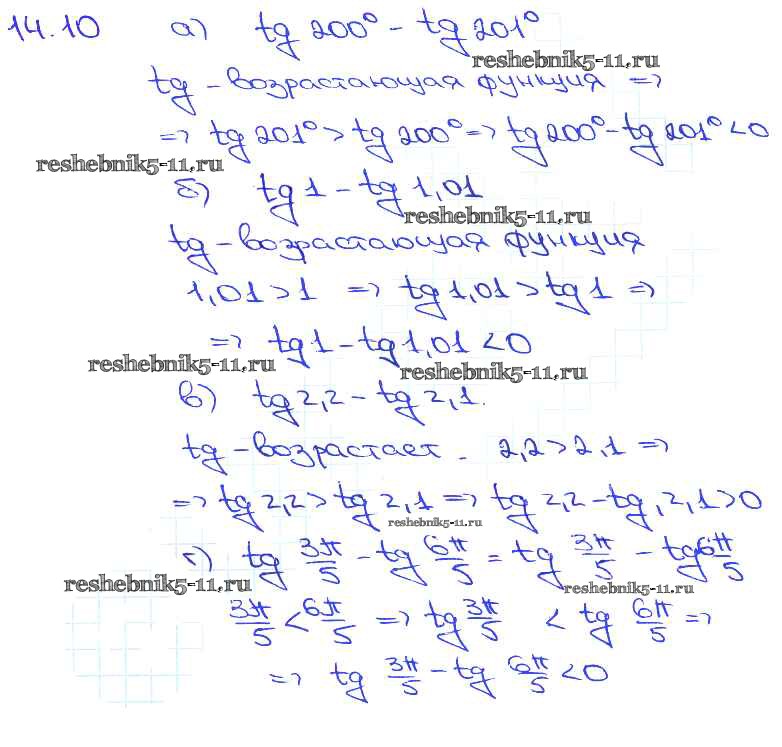 14.10 а) tg 200° - tg 201°
reshebnik5-11.ru
tg - возрастающая функция =>
=> tg 201° > tg 200° => tg 200° - tg 201° < 0
reshebnik5-11.ru
б) tg 1 - tg 1,01
reshebnik5-11.ru
tg - возрастающая функция
1,01 > 1 => tg 1,01 > tg 1 =>
=> tg 1 - tg 1,01 < 0
reshebnik5-11.ru reshebnik5-11.ru
в) tg 2,2 - tg 2,1.
tg - возрастает. 2,2 > 2,1 =>
=> tg 2,2 > tg 2,1 => tg 2,2 - tg 2,1 > 0
reshebnik5-11.ru
г) tg 3π/5 - tg 6π/5 = tg 3π/5 - tg 6π/5
reshebnik5-11.ru reshebnik5-11.ru
3π/5 < 6π/5 => tg 3π/5 < tg 6π/5 =>
=> tg 3π/5 - tg 6π/5 < 0